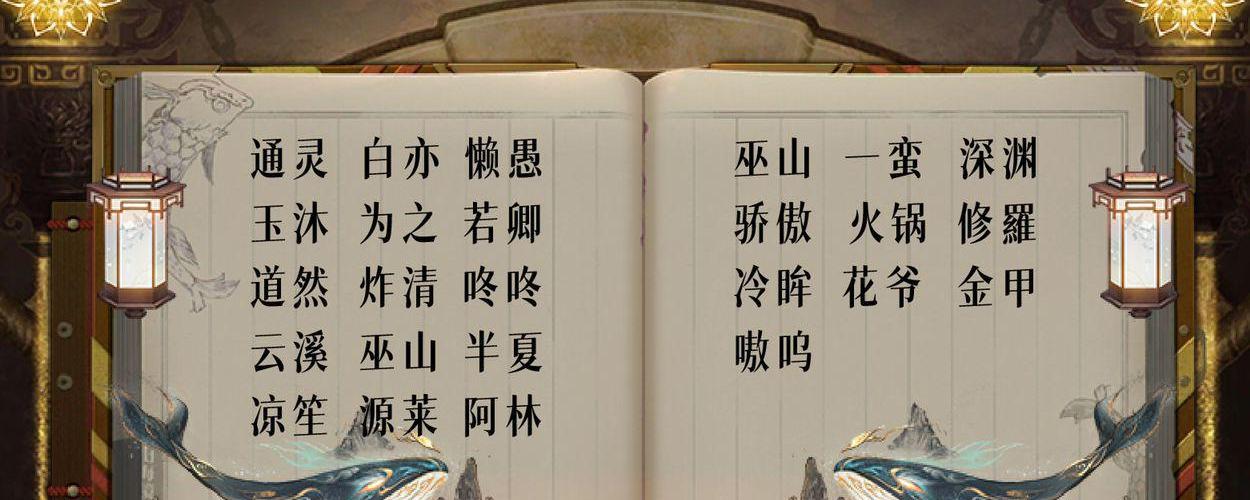 通灵 白亦 懒愚
玉沐 为之 若卿
道然 炸清 咚咚
云溪 巫山 半夏
凉笙 源莱 阿林
巫山 一蛮 深渊
骄傲 火锅 修羅
冷眸 花爷 金甲
嗷呜